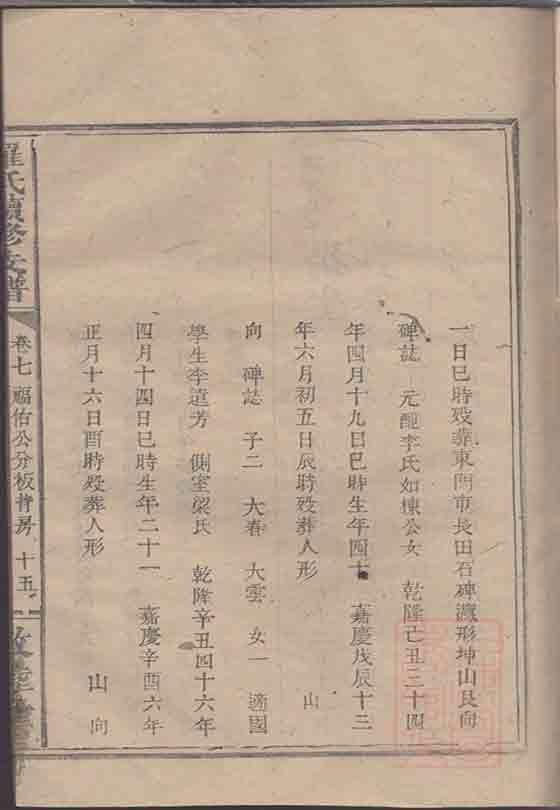 一日巳時歿葬東門市長田石碑灣形坤山艮向
碑誌 元配李氏如棟公女 乾隆己丑三十四
年四月十九日巳時生年四十 嘉慶戊辰十三
年六月初五日辰時歿葬人形 山
向 碑誌 子二 大春 大雲 女一 適國
學生李遠芳 側室梁氏 乾隆辛丑四十六年
四月十四日巳時生年二十一 嘉慶辛酉六年
正月十六日酉時歿葬人形 山 向
羅氏續修支譜
卷七 福佑公分板背房 十五